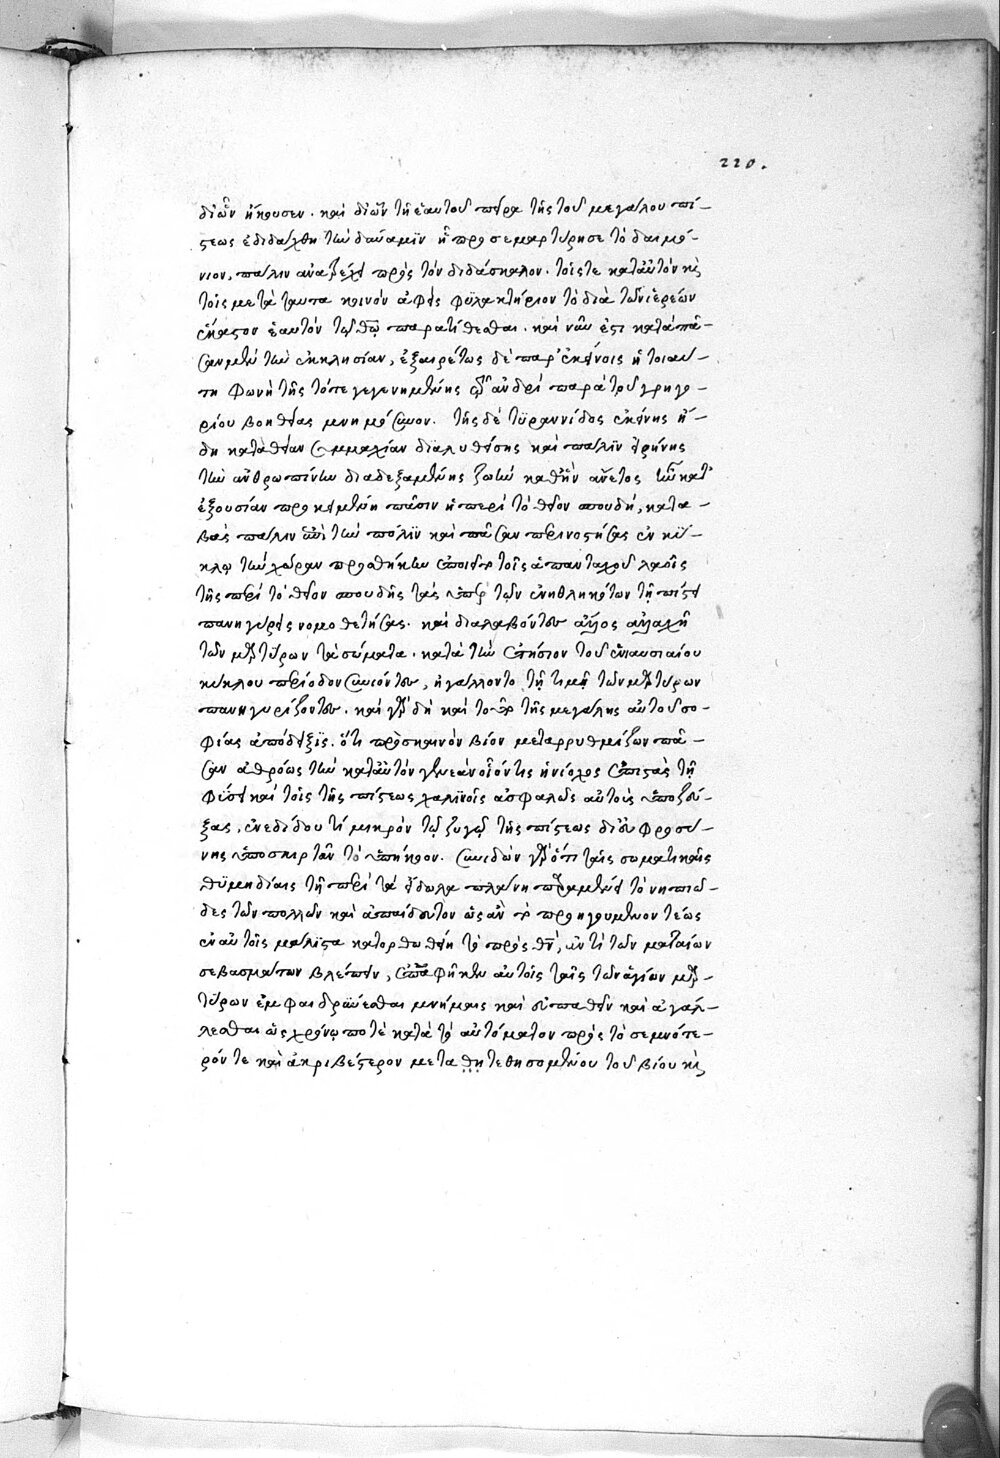 220.
δι' ὧν ἤκουσεν. καὶ δι' ὧν τῇ ἑαυτοῦ πείρᾳ τῆς τοῦ μεγάλου πί-
στεως ἐδιδάχθη τὴν δύναμιν ᾗ προσεμαρτύρησε τὸ δαιμό-
νιον, πάλιν ἀνατρέχει πρὸς τὸν διδάσκαλον. τοῖς τε κατ' αὐτὸν κὶ
τοῖς μετὰ ταῦτα κοινὸν ἀφεὶς φυλακτήριον τὸ διὰ τῶν ἱερέων
ἕκαστον ἑαυτὸν τῷ θῷ παρατίθεσθαι. καὶ νῦν ἔτι κατὰ πᾶ-
σαν μὲν τὴν ἐκκλησίαν, ἐξαιρέτως δὲ παρ' ἐκείνοις ἡ τοιαύ-
τη φωνὴ τῆς τότε γεγενημένης τῷ ἀνδρὶ παρὰ τοῦ γρηγο-
ρίου βοηθείας μνημόσυνον. τῆς δὲ τυραννίδος ἐκείνης ἤ-
δη κατὰ θείαν συμμαχίαν διαλυθείσης καὶ πάλιν εἰρήνης
τὴν ἀνθρωπίνην διαδεξαμένης ζωὴν καθ' ἣν ἄνετος ἦν κατ'
ἐξουσίαν προκειμένη πᾶσιν ἡ περὶ τὸ θεῖον σπουδὴ, κατα-
βὰς πάλιν ἐπὶ τὴν πόλιν καὶ πᾶσαν περινοστήσας ἐν κύ-
κλῳ τὴν χώραν προσθήκην ἐποιεῖτο τοῖς ἁπανταχοῦ λαοῖς
τῆς περὶ τὸ θεῖον σπουδῆς τὰς ὑπὲρ τῶν ἐνηθληκότων τῇ πίστει
πανηγύρεις νομοθετήσας. καὶ διαλαβόντες ἄλλος ἀλλαχῇ
τῶν μαρτύρων τὰ σώματα. κατὰ τὴν ἐτήσιον τοῦ ἐνιαυσιαίου
κύκλου περίοδον συνιόντες, ἠγάλλοντο τῇ τιμῇ τῶν μαρτύρων
πανηγυρίζοντες. καὶ γὰρ δὴ καὶ τοῦτο τῆς μεγάλης αὐτοῦ σο-
φίας ἀπόδειξις. ὅτι πρὸς καινὸν βίον μεταρρυθμίζων πᾶ-
σαν ἀθρόως τὴν κατ' αὐτὸν γενεὰν οἷόν τις ἡνίοχος ἐπιστὰς τῇ
φύσει καὶ τοῖς τῆς πίστεως χαλινοῖς ἀσφαλῶς αὐτοὺς ὑποζεύ-
ξας, ἐνεδίδου τι μικρὸν τῷ ζυγῷ τῆς πίστεως δι' εὐφροσύ-
νης ὑποσκιρτᾶν τὸ ὑπήκοον. συνιδὼν γὰρ ὅτι ταῖς σωματικαῖς
θυμηδίαις τῇ περὶ τὰ εἴδωλα πλάνῃ παραμένει τὸ νηπιῶ-
δες τῶν πολλῶν καὶ ἀπαίδευτον ὡς ἂν τὸ προηγούμενον τέως
ἐν αὐτοῖς μάλιστα κατορθωθείη τὸ πρὸς θν, ἀντὶ τῶν ματαίων
σεβασμάτων βλέπειν, ἐπαφῆκεν αὐτοῖς ταῖς τῶν ἁγίων μαρ-
τύρων ἐμφαιδρύνεσθαι μνήμαις καὶ εὐπαθεῖν καὶ ἀγάλ-
λεσθαι ὡς χρόνῳ ποτὲ κατὰ τὸ αὐτόματον πρὸς τὸ σεμνότε-
ρόν τε καὶ ἀκριβέστερον μετα θη τεθησομένου τοῦ βίου κὶ